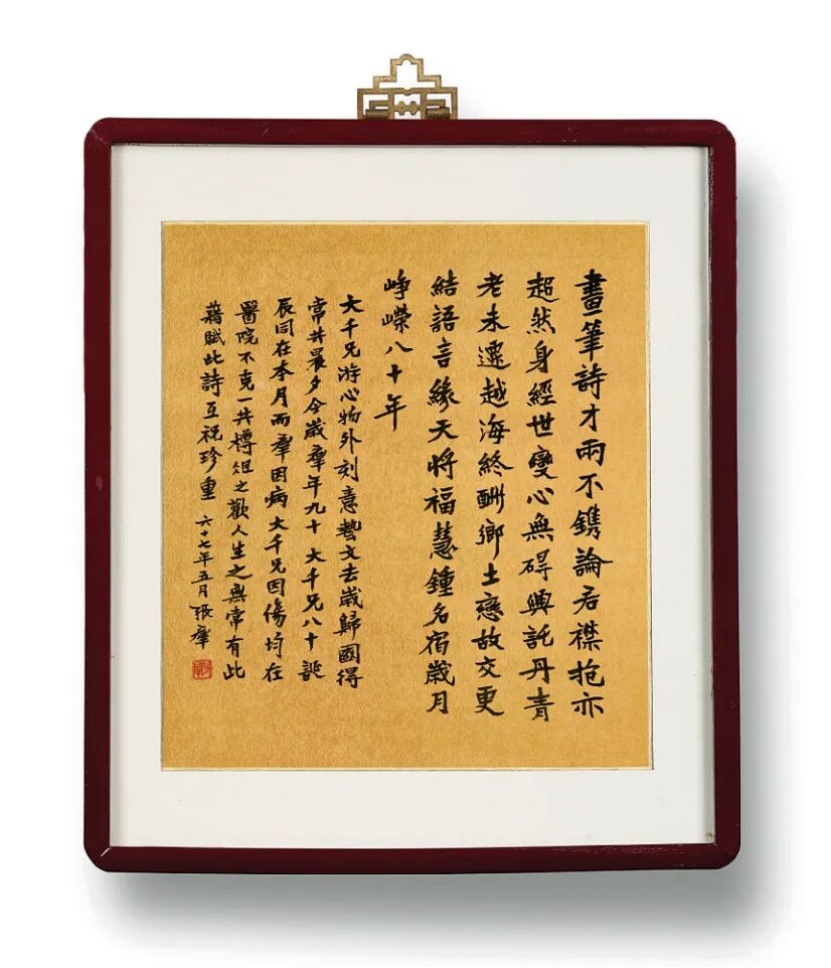 畫筆詩才兩不鐫論君襟抱亦
超然身經世變心無碍興託丹青
老未遷越海終酬鄉土戀故交更
結語言緣天將福慧鍾名宿歲月
崢嶸八十年
大千兄游心物外刻意藝文去歲歸國得
常共晨夕今歲羣年九十大千兄八十誕
辰同在本月而羣因病大千兄因傷均在
醫院不克一共樽俎之歡人生之無常有此
藉賦此詩互祝珍重 六十七年五月張羣